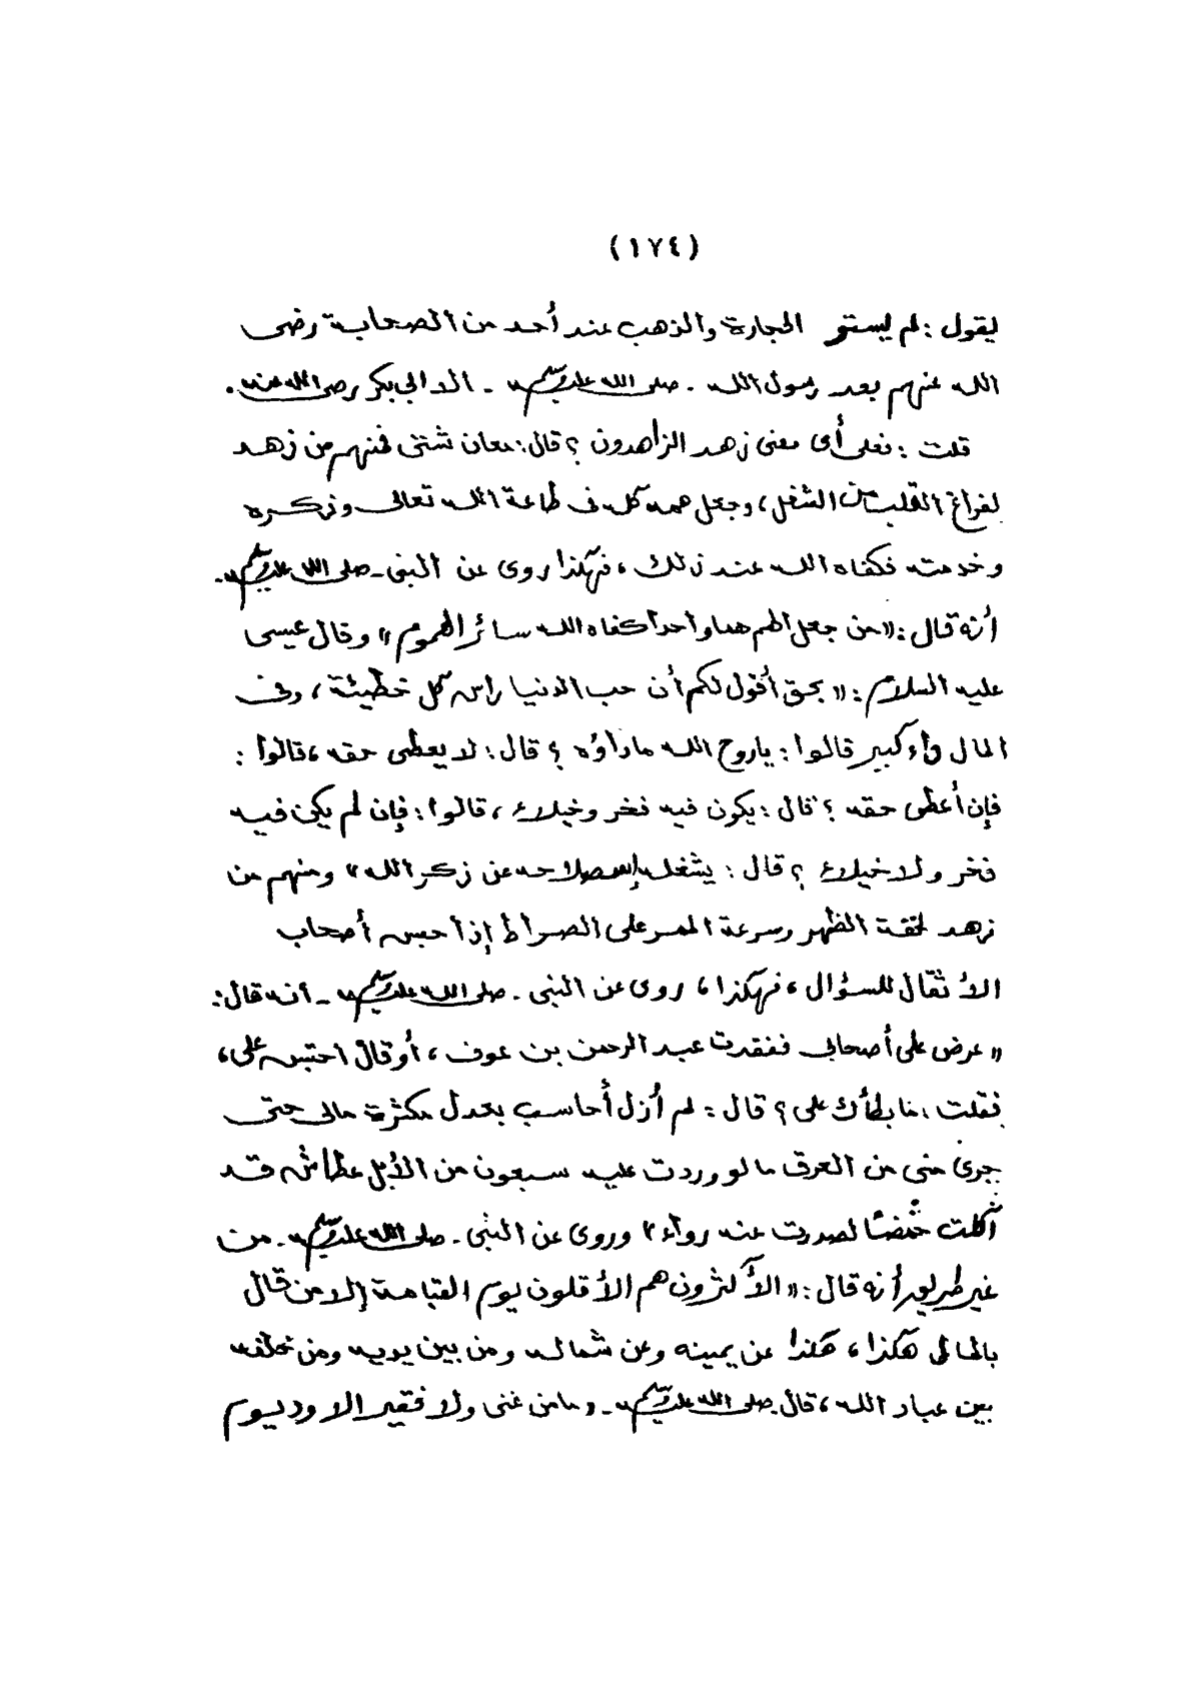 (١٧٤)
يقول : لم يستو الحجارة والذهب عند أحد من الصحابة رضى
الله عنهم بعد رسول الله - صلى الله عليه وسلم - الا لابي بكر رضى الله عنه .
قلت : فعلى أى معنى زهد الزاهدون ؟ قال : معان شتى فمنهم من زهد
لفراغ القلب من الشغل ، وجعل همه كله فى طاعة الله تعالى وذكره
وخدمته فكفاه الله عند ذلك ، فهكذا روى عن النبى - صلى الله عليه وسلم -
أنه قال : « من جعل الهم هما واحدا كفاه الله سائر الهموم » وقال عيسى
عليه السلام : « بحق أقول لكم أن حب الدنيا راس كل خطيئة ، وفى
المال داء كبير قالوا : ياروح الله ماداؤه ؟ قال : لا يعطى حقه ، قالوا :
فإن أعطى حقه ؟ قال : يكون فيه فخر وخيلاء ، قالوا : فإن لم يكن فيه
فخر ولا خيلاء ؟ قال : يشغله إستصلاحه عن ذكر الله » ومنهم من
زهد لخفة الظهر وسرعة الممر على الصراط إذا حبس أصحاب
الأثقال للسؤال ، فهكذا ، روى عن النبى - صلى الله عليه وسلم - أنه قال :
« عرض على أصحابى ففقدت عبد الرحمن بن عوف ، أو قال احتبس على ،
فقلت : ما بطأك على ؟ قال : لم أزل أحاسب بعدل مكثرة مالى حتى
جرى منى من العرق ما لو وردت عليه سبعون من الأبل عطاش قد
أكلت حمضًا لصدرت عنه رواء » وروى عن النبى - صلى الله عليه وسلم - من
غير طريق أنه قال : « الأكثرون هم الأقلون يوم القيامة إلا من قال
بالمال هكذا ، هكذا عن يمينه وعن شماله ومن بين يديه ومن خلفه
بين عباد الله ، قال - صلى الله عليه وسلم - « مامن غنى ولا فقير الا ود يوم